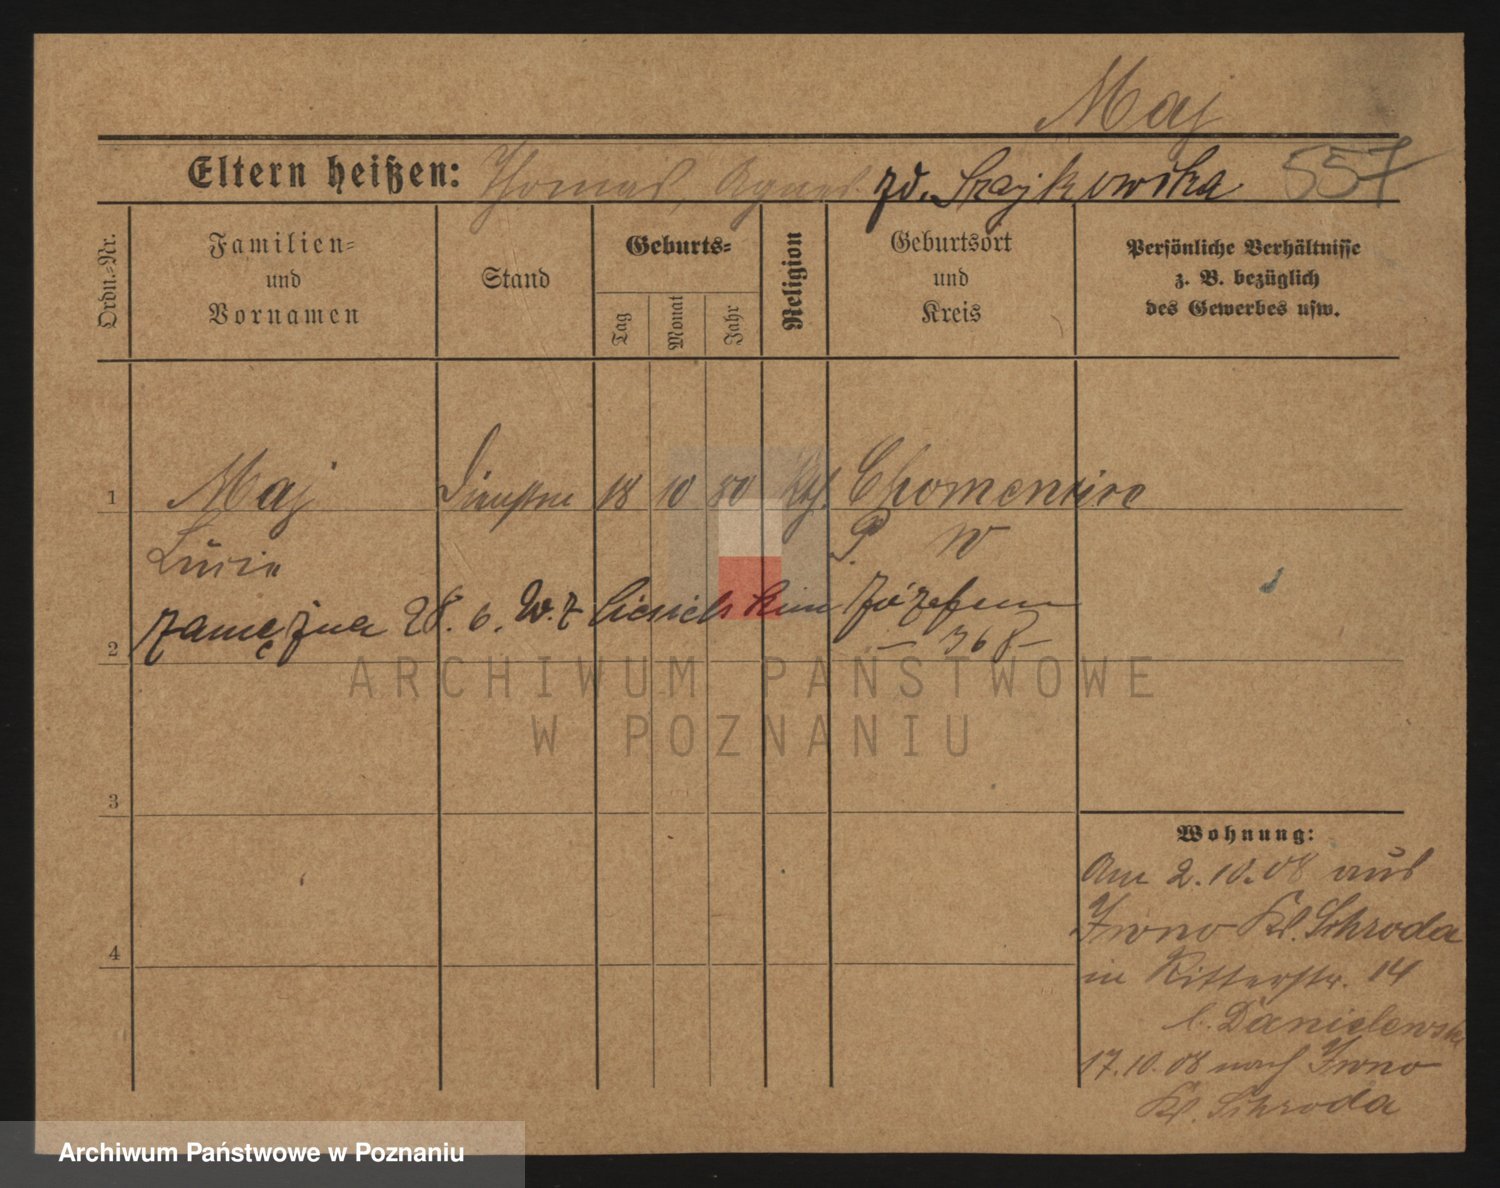 Maj
Eltern heißen: Thomas, Agnes zd. Szajkowska 557
Ordn.-Nr.
Familien-
und
Vornamen
Stand
Geburts-
Tag
Monat
Jahr
Religion
Geburtsort
und
Kreis
Persönliche Verhältnisse
z. B. bezüglich
des Gewerbes usw.
1 Maj 18 10 80 Kth.
P. W
zamężna 28. 6. Józefem
2 — 368 —
3
4
Wohnung:
Am 2.10.08 aus
Iwno Kr. Schroda
in Ritterstr. 14
b. Danielewski
17.10.08 nach Iwno
Kr. Schroda
ARCHIWUM PAŃSTWOWE
W POZNANIU
Archiwum Państwowe w Poznaniu